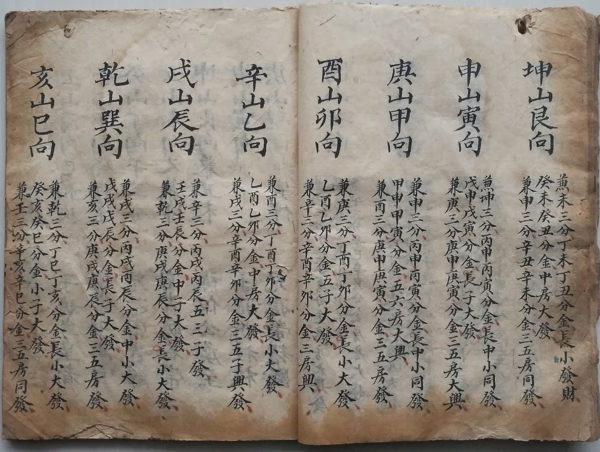 坤山艮向
兼未三分丁未丁丑分金長小發財
癸未癸丑分金中房大發
兼申三分辛丑辛未分金三五房同發
申山寅向
兼坤三分丙申丙寅分金長中小同發
戊申戊寅分金長子大發
兼庚三分庚申庚寅分金三五房大興
庚山甲向
兼申三分丙申丙寅分金長中小同發
甲申甲寅分金五六房大興
兼酉三分庚申庚寅分金三五房發
酉山卯向
兼庚三分丁酉丁卯分金長小大發
乙酉乙卯分金五子大發
兼辛三分辛酉辛卯分金三房興
辛山乙向
兼酉三分丁酉丁卯分金長小大發
乙酉乙卯分金中房大發
兼戌三分辛酉辛卯分金三五子興發
戌山辰向
兼辛三分丙戌丙辰五三子發
壬戌壬辰分金中子大發
兼乾三分庚戌庚辰分金長小大發
乾山巽向
兼戌三分丙戌丙辰分金中小大發
戊戌戊辰分金長子大發
兼亥三分庚戌庚辰分金三五房發
亥山巳向
兼乾三分丁巳丁亥分金長小大發
癸亥癸巳分金小子大發
兼壬三分辛亥辛巳分金三五房同發